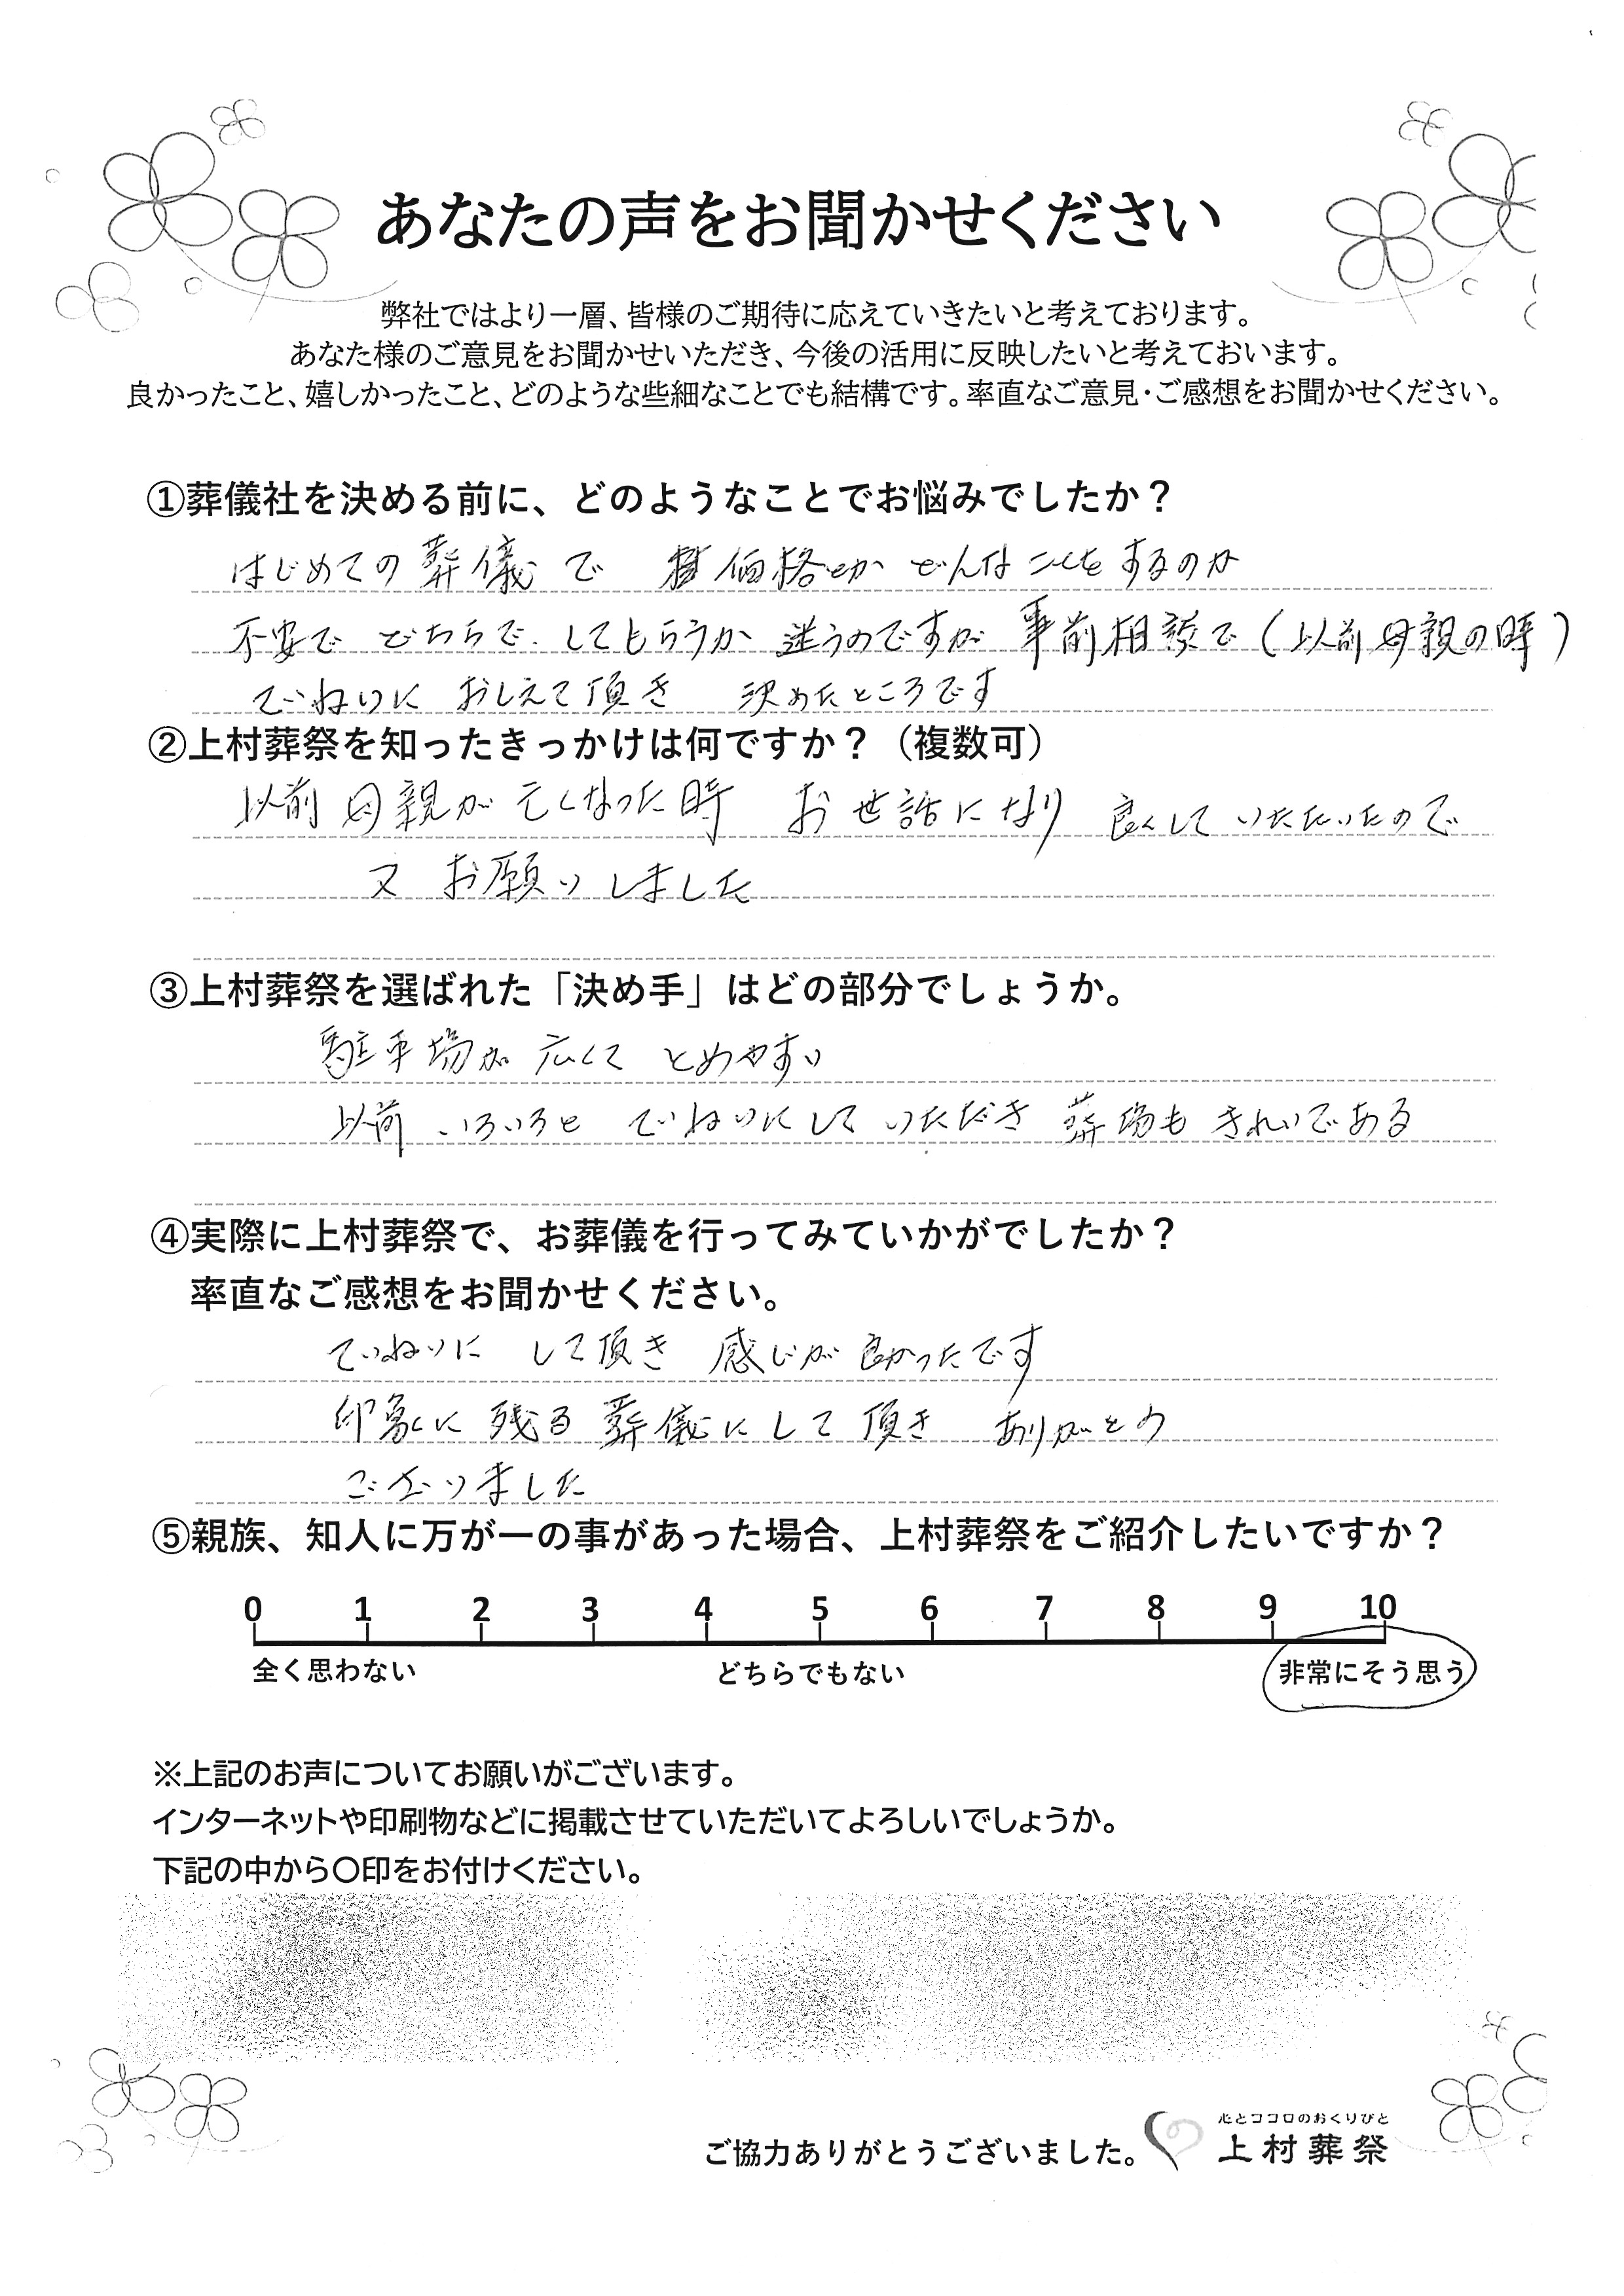 あなたの声をお聞かせください
弊社ではより一層、皆様のご期待に応えていきたいと考えております。
あなた様のご意見をお聞かせいただき、今後の活用に反映したいと考えておいます。
良かったこと、嬉しかったこと、どのような些細なことでも結構です。率直なご意見・ご感想をお聞かせください。
①葬儀社を決める前に、どのようなことでお悩みでしたか？
はじめての葬儀で 価格とか どんなことをするのか
不安で どちらで、してもらうか 迷うのですが 事前相談で（以前母親の時）
でねいに おしえて頂き 決めたところです
②上村葬祭を知ったきっかけは何ですか？（複数可）
以前母親が亡くなった時 お世話になり 良くして いただいたので
又 お願いしました
③上村葬祭を選ばれた「決め手」はどの部分でしょうか。
駐車場が 広くて とめやすい
以前 いろいろと ていねいにして いただき 葬場も きれいである
④実際に上村葬祭で、お葬儀を行ってみていかがでしたか？
率直なご感想をお聞かせください。
ていねいに して頂き 感じが 良かったです
印象に 残る 葬儀にして 頂き ありがとう
ございました
⑤親族、知人に万が一の事があった場合、上村葬祭をご紹介したいですか？
0 1 2 3 4 5 6 7 8 9 10
全く思わない どちらでもない 非常にそう思う
※上記のお声についてお願いがございます。
インターネットや印刷物などに掲載させていただいてよろしいでしょうか。
下記の中から〇印をお付けください。
心とココロのおくりびと
ご協力ありがとうございました。 上村葬祭